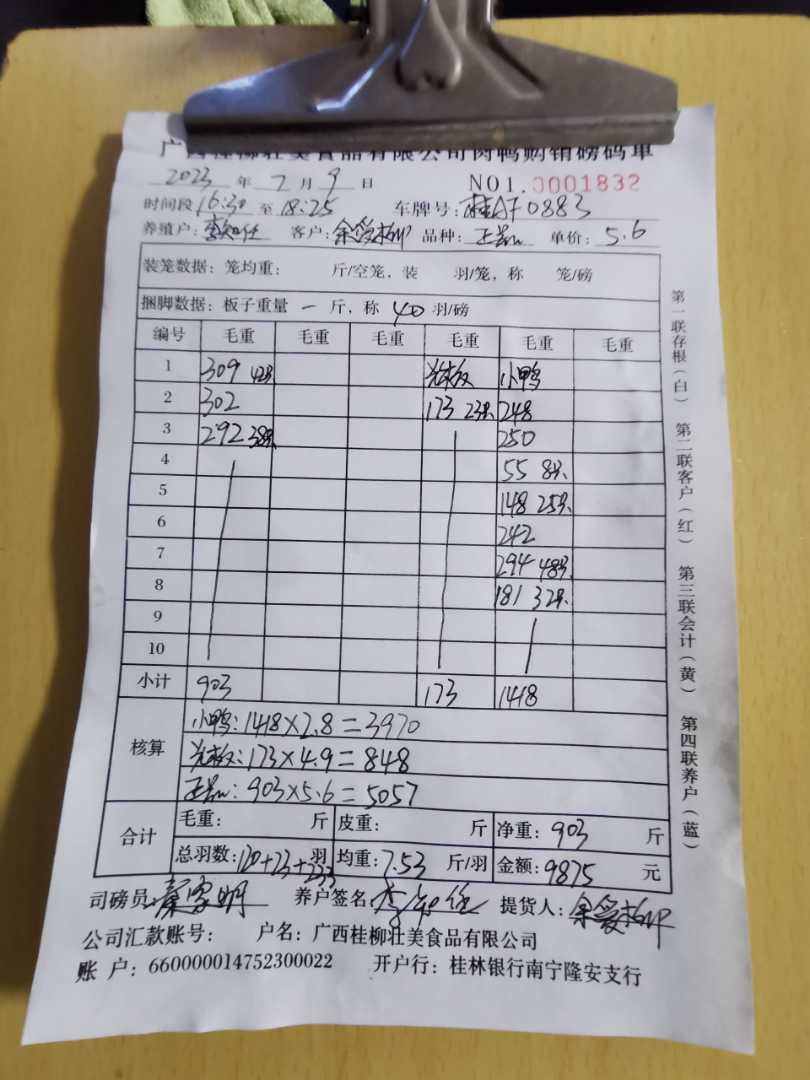 广西桂柳壮美食品有限公司肉鸭购销磅码单
2023 年 7 月 9 日 NO1.0001832
时间段 16:30 至 18:25 车牌号: 桂AF0883
养殖户: 客户: 余爱柳 品种: 正品 单价: 5.6
装笼数据: 笼均重: 斤/空笼, 装 羽/笼, 称 笼/磅
捆脚数据: 板子重量 一 斤, 称 40 羽/磅
编号 毛重 毛重 毛重 毛重 毛重 毛重
1 309 42只 光板 小鸭
2 302 173 23只 248
3 292 38只 250
4 55 8只
5 148 25只
6 242
7 294 48只
8 181 32只
9
10
小计 903 173 1418
核算
小鸭: 1418×2.8=3970
光板: 173×4.9=848
正品: 903×5.6=5057
合计
毛重: 斤 皮重: 斤 净重: 903 斤
总羽数: 120+23+233 羽 均重: 7.53 斤/羽 金额: 9875 元
司磅员: 养户签名: 提货人: 余爱柳
公司汇款账号: 户名: 广西桂柳壮美食品有限公司
账 户: 660000014752300022 开户行: 桂林银行南宁隆安支行
第一联存根(白) 第二联客户(红) 第三联会计(黄) 第四联养户(蓝)